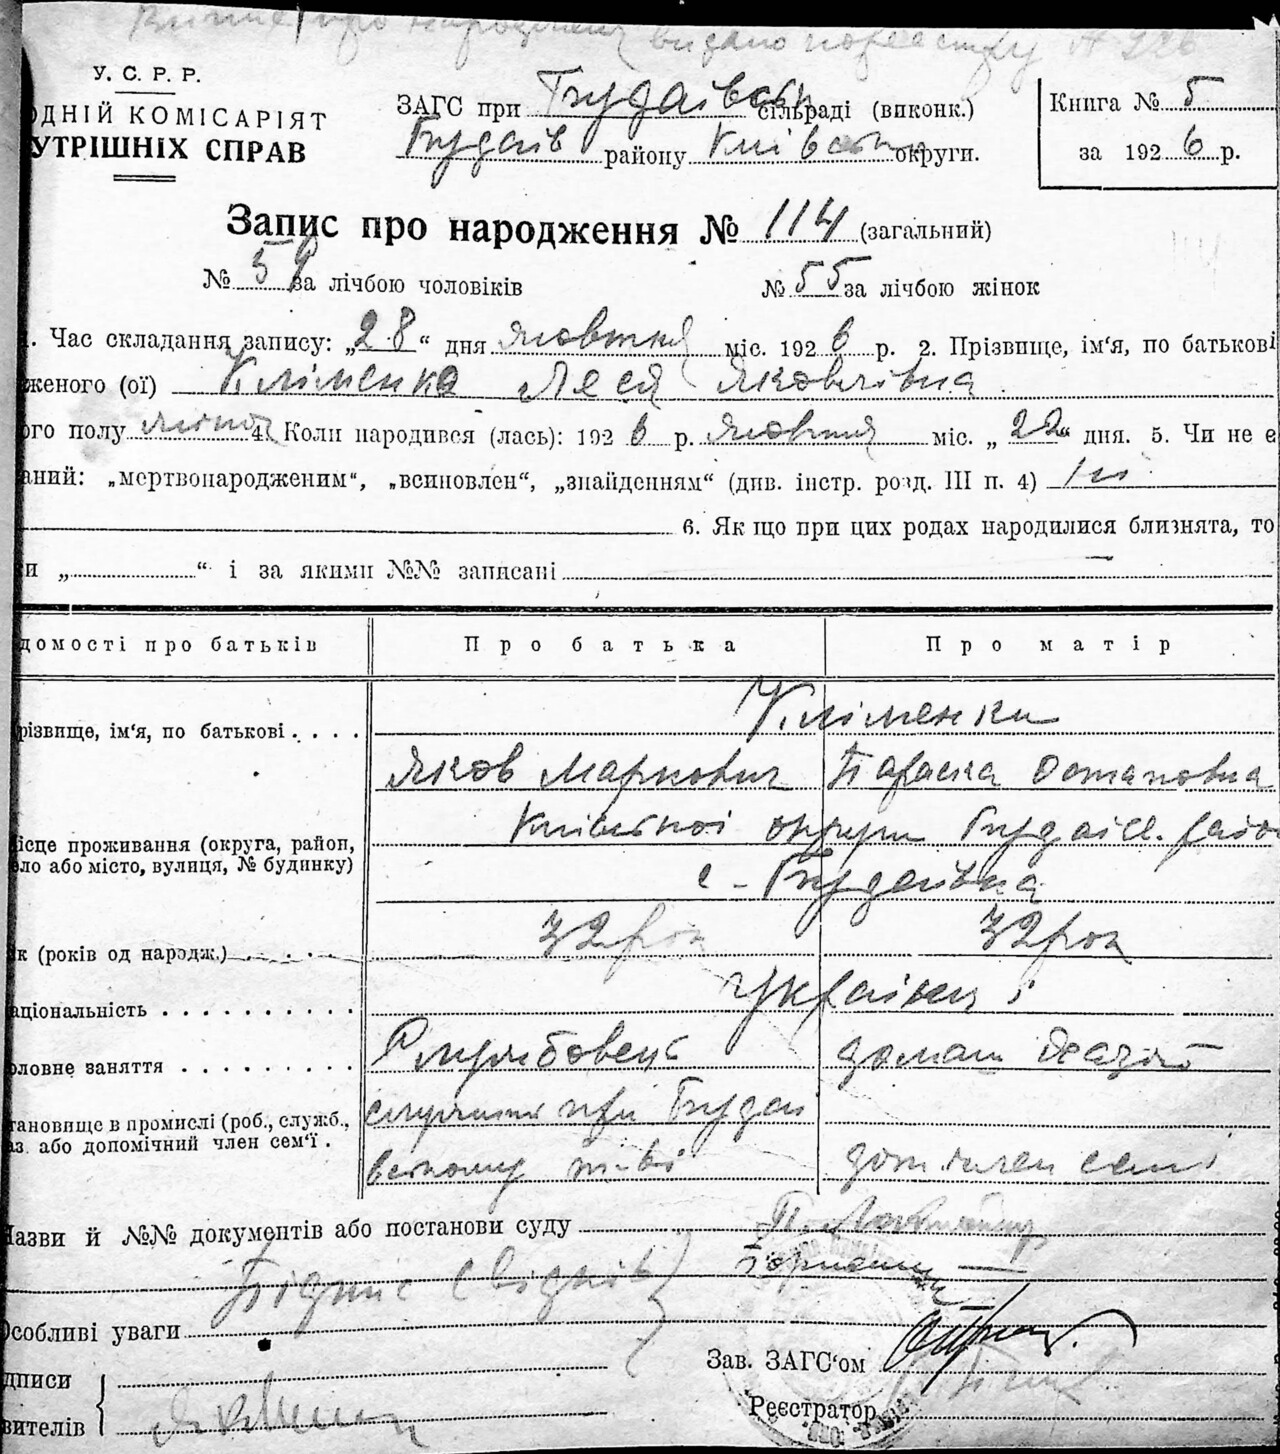 видано по реєстру № 226
У. С. Р. Р.
ОДНІЙ КОМІСАРІЯТ
УТРІШНІХ СПРАВ
ЗАГС при Будаївськ сільраді (виконк.)
Будаїв району Київськ округи.
Книга № 5
за 1926 р.
Запис про народження № 114 (загальний)
№ 59 за лічбою чоловіків № 55 за лічбою жінок
1. Час складання запису: „28“ дня жовтня міс. 1926 р. 2. Прізвище, ім‘я, по батькові
женого (ої) Кліменко Леся Яковлівна
ого полу жіноч 4. Коли народився (лась): 1926 р. жовтня міс. „22“ дня. 5. Чи не є
аний: „мертвонародженим“, „всиновлен“, „знайденням“ (див. інстр. розд. III п. 4) ні
6. Як що при цих родах народилися близнята, то
и „ “ і за якими №№ записані —
домості про батьків Про батька Про матір
різвище, ім‘я, по батькові Кліменки
Яков Маркович Параска Остаповна
ісце проживання (округа, район,
ло або місто, вулиця, № будинку) Київської округи Будаїв. район
с. Будаївка
к (років од народж.) 32 рок 32 рок
аціональність Українці
ловне заняття Службовець домаш
тановище в промислі (роб., служб.,
аз. або допомічний член сем‘ї . при Будаї
вському дом. член семї
Назви й №№ документів або постанови суду П.
Підпис свідків
Особливі уваги
Зав. ЗАГС‘ом
дписи
вителів
Реєстратор